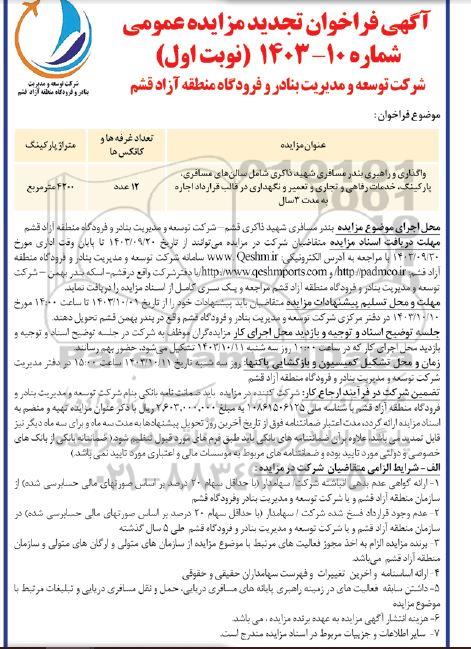 آگهی فراخوان تجدید مزایده عمومی
شماره ۱۰-۱۴۰۳ (نوبت اول)
شرکت توسعه و مدیریت بنادر و فرودگاه منطقه آزاد قشم
شرکت توسعه و مدیریت
بنادر و فرودگاه منطقه آزاد قشم
موضوع فراخوان:
عنوان مزایده
تعداد غرفه ها و کانکس ها
متراژ پارکینگ
واگذاری و راهبری بندر مسافری شهید ذاکری شامل سالن های مسافری،
پارکینگ، خدمات رفاهی و تجاری و تعمیر و نگهداری در قالب قرارداد اجاره
به مدت ۳ سال
۱۲ عدد
۴۲۰۰ مترمربع
محل اجرای موضوع مزایده بندر مسافری شهید ذاکری قشم – شرکت توسعه و مدیریت بنادر و فرودگاه منطقه آزاد قشم
مهلت دریافت اسناد مزایده متقاضیان شرکت در مزایده می‌توانند از تاریخ ۱۴۰۳/۰۹/۲۰ تا پایان وقت اداری مورخ
۱۴۰۳/۰۹/۳۰ با مراجعه به آدرس الکترونیکی: www.Qeshm.ir سامانه شرکت توسعه و مدیریت بنادر و فرودگاه منطقه
آزاد قشم http://padmco.ir و http://www.qeshmports.com/ یا دفتر شرکت واقع در قشم- اسکله بندر بهمن – شرکت
توسعه و مدیریت بنادر و فرودگاه منطقه آزاد قشم مراجعه و یک سری کامل از اسناد مزایده را دریافت نمایند.
مهلت و محل تسلیم پیشنهادات مزایده متقاضیان باید پیشنهادات خود را از تاریخ ۱۴۰۳/۱۰/۰۱ تا ساعت ۱۴:۰۰ مورخ
۱۴۰۳/۱۰/۱۰ در دفتر مرکزی شرکت توسعه و مدیریت بنادر و فرودگاه قشم واقع در بندر بهمن قشم تحویل دهند.
جلسه توضیح اسناد و توجیه و بازدید محل اجرای کار مزایده‌گران موظف به شرکت در جلسه توضیح اسناد و توجیه و
بازدید محل اجرای کار که در ساعت ۱۰:۰۰ روز سه شنبه ۱۴۰۳/۱۰/۱۱ تشکیل می‌شود، حضور بهم رسانند.
زمان و محل تشکیل کمیسیون و بازگشایی پاکتها: روز سه شنبه تاریخ ۱۴۰۳/۱۰/۱۱ ساعت ۱۵:۰۰ در دفتر مدیریت
شرکت توسعه و مدیریت بنادر و فرودگاه منطقه آزاد قشم
تضمین شرکت در فرآیند ارجاع کار: شرکت کننده در مزایده باید ضمانت نامه بانکی بنام شرکت توسعه و مدیریت بنادر و
فرودگاه منطقه آزاد قشم با شناسه ملی ۱۰۸۶۱۵۰۶۱۲۵ به مبلغ ۲.۶۰۳.۰۰۰.۰۰۰ ریال با ذکر عنوان مزایده تهیه و منضم به
اسناد مزایده ارائه گردد، مدت اعتبار ضمانتنامه فوق از تاریخ آخرین روز تحویل پیشنهادها به مدت سه ماه و برای سه ماه دیگر نیز
قابل تمدید می باشد. علاوه برآن ضمانتنامه های بانکی باید طبق فرم های مورد قبول تنظیم شود (ضمانتنامه بانکی از بانک های
خصوصی و دولتی مورد تایید بوده و ضمانتنامه های مربوط به موسسات مالی و اعتباری مورد تایید نمی باشد.)
الف - شرایط الزامی متقاضیان شرکت در مزایده:
۱- ارائه گواهی عدم بدهی انباشته شرکت/ سهامدار (با حداقل سهام ۲۰ درصد بر اساس صورتهای مالی حسابرسی شده) از
سازمان منطقه آزاد قشم و یا شرکت توسعه و مدیریت بنادر وفرودگاه قشم
۲- عدم وجود قرارداد فسخ شده شرکت / سهامدار (با حداقل سهام ۲۰ درصد بر اساس صورتهای مالی حسابرسی شده) در
سازمان منطقه آزاد قشم و یا شرکت توسعه و مدیریت بنادر و فرودگاه قشم طی ۵ سال گذشته
۳- برنده مزایده الزام به اخذ مجوز فعالیت های مرتبط با موضوع مزایده از سازمان های متولی و ارگان های متولی و سازمان
منطقه آزاد قشم می‌باشد.
۴- ارائه اساسنامه و اخرین تغییرات و فهرست سهامداران حقیقی و حقوقی
۵- داشتن سابقه فعالیت های در زمینه راهبری پایانه های مسافری دریایی، حمل و نقل مسافری دریایی و تبلیغات مرتبط با
موضوع مزایده
۶- هزینه انتشار آگهی مزایده به عهده برنده مزایده، می باشد.
۷- سایر اطلاعات و جزییات مربوط در اسناد مزایده مندرج است.